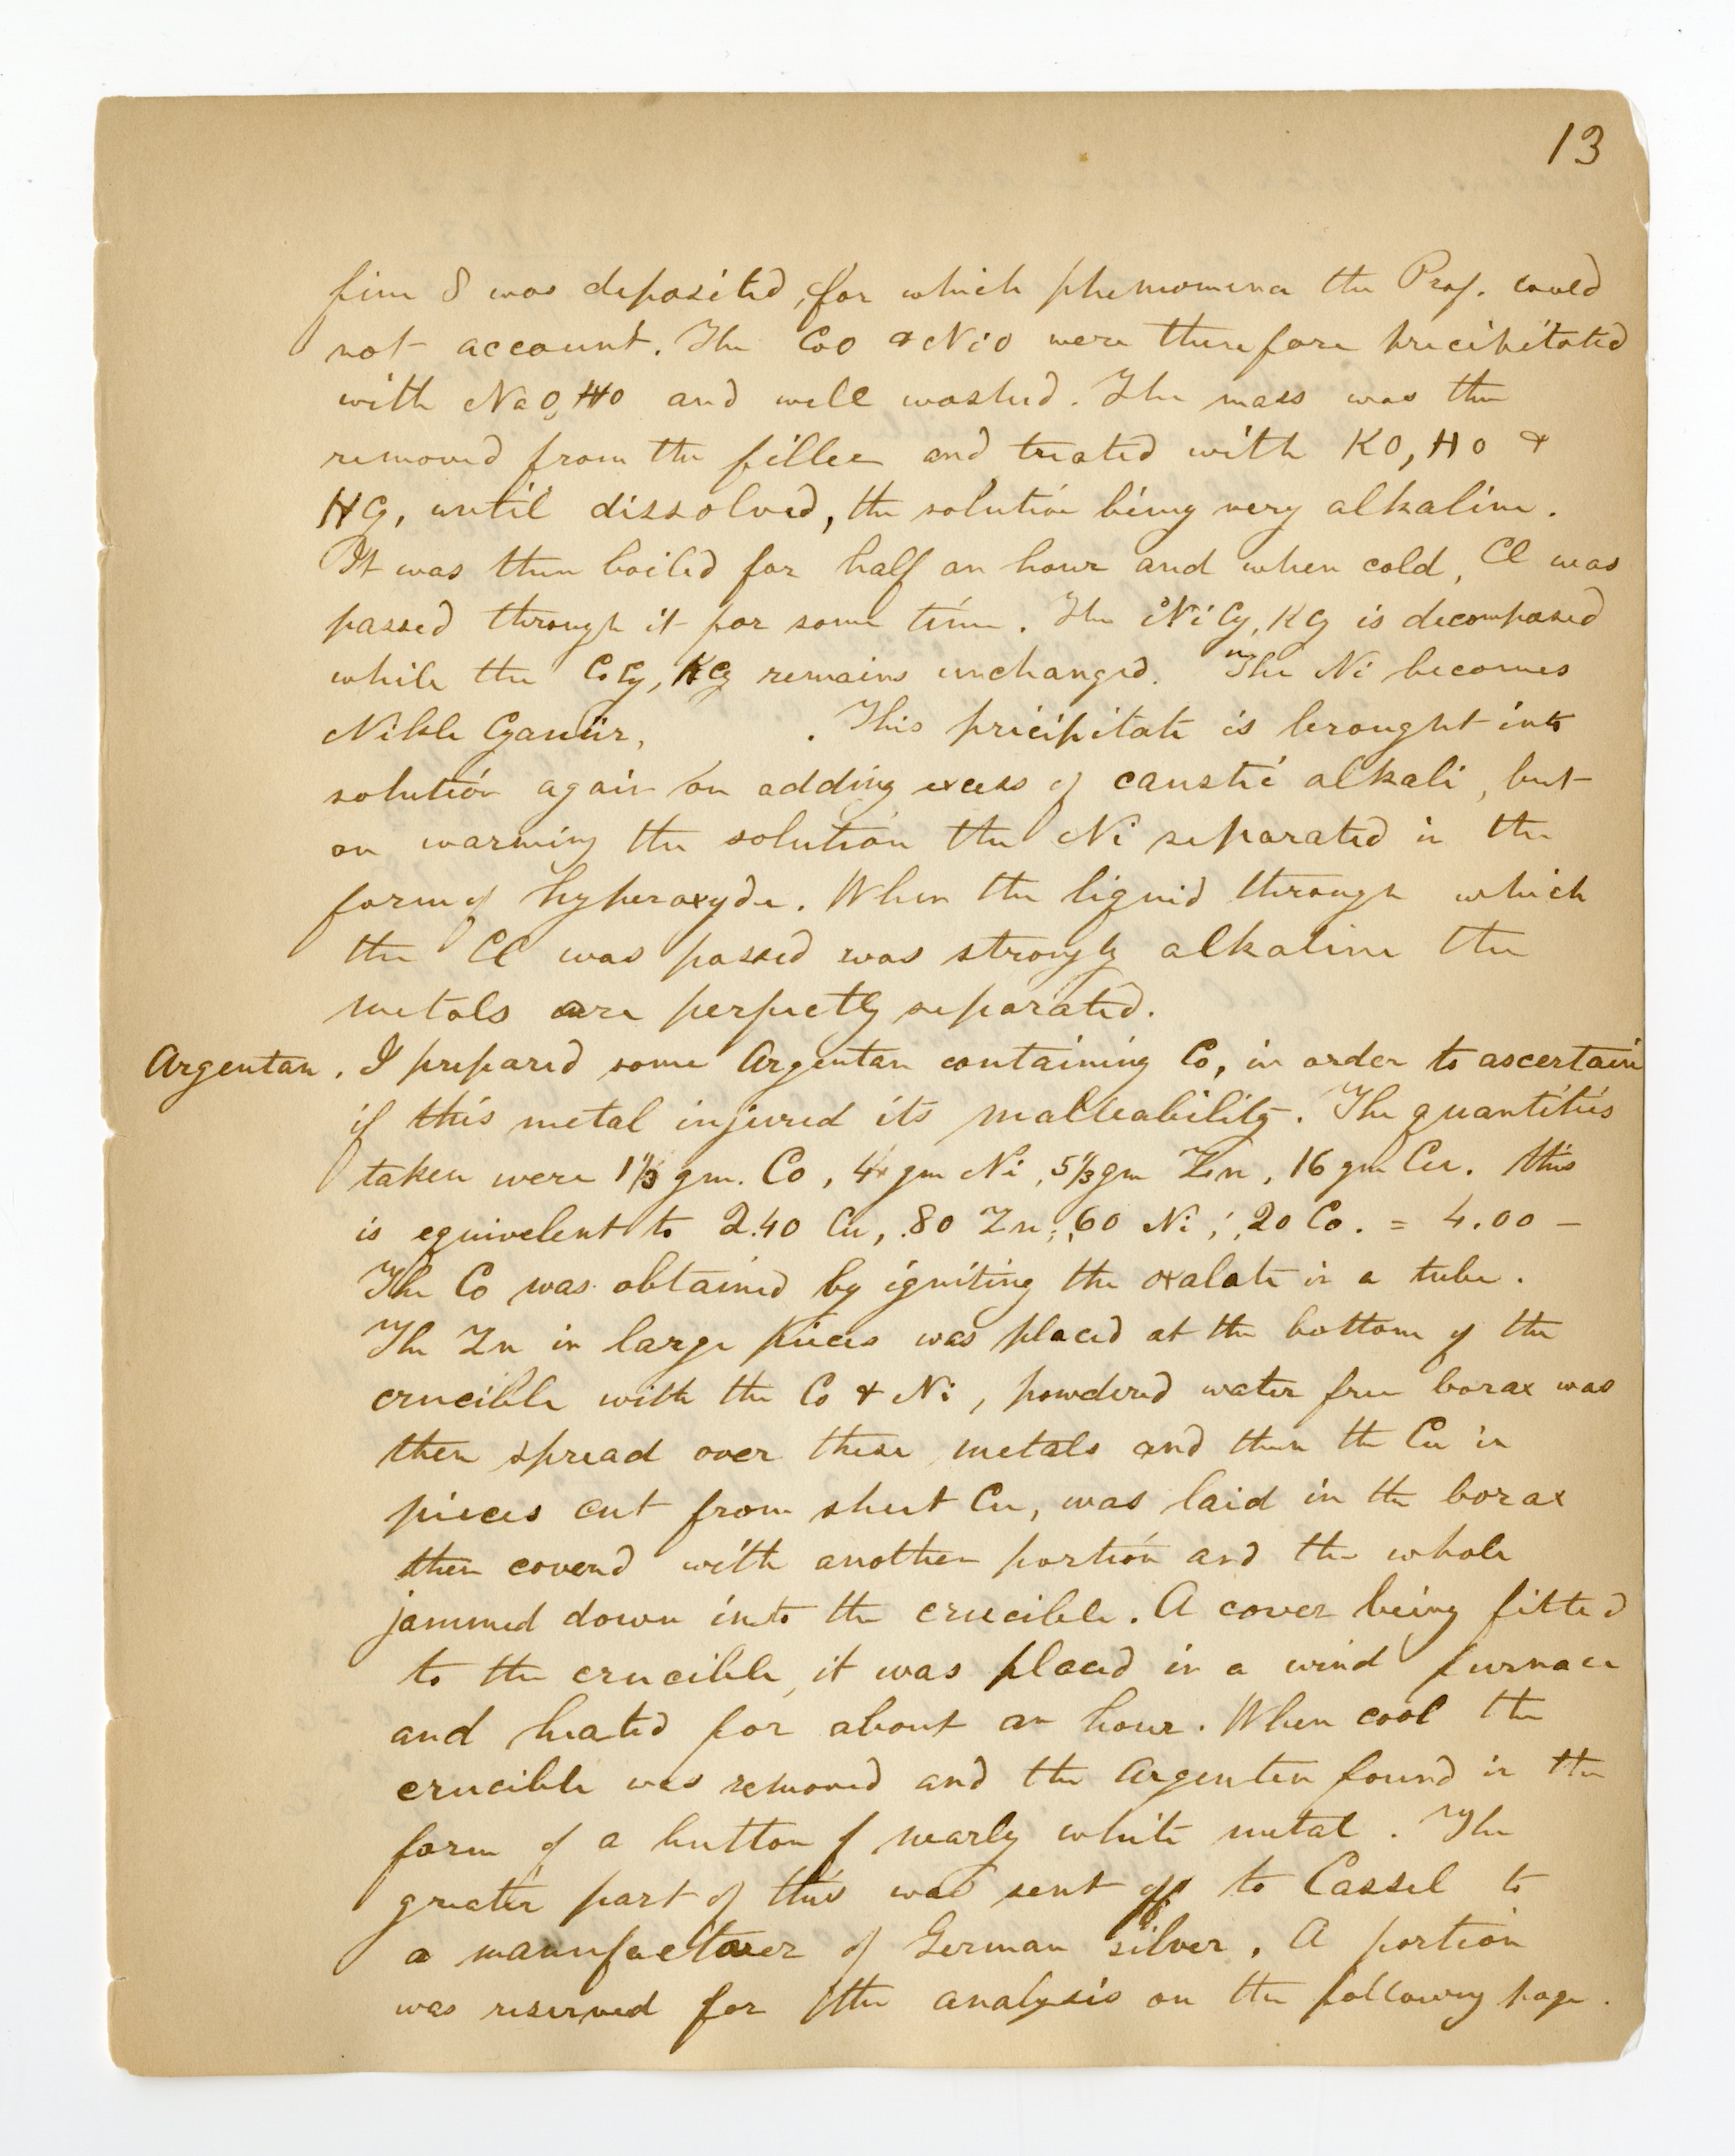 13
fine S was deposited, for which phenomena the Prof. could
not account. The CoO & NiO were therefore precipitated
with NaO, HO and well washed. The mass was then
removed from the filter and treated with KO, HO &
HCy, until dissolved, the solution being very alkaline.
It was then boiled for half an hour and when cold, Cl was
passed through it for some time. The NiCy, KCy is decomposed
while the CoCy, KCy remains unchanged. The Ni becomes
Nikle Cyanür, . This pricipitate is brought into
solution again on adding excess of caustic alkali, but
on warming the solution the Ni separated in the
form of hyperoxyde. When the liquid through which
the Cl was passed was strongly alkaline the
metals are perfectly separated.
Argentan. I prepared some Argentan containing Co, in order to ascertain
if this metal injured its malleability. The quantities
taken were 1 1/3 gm. Co, 4 gm Ni, 5 1/3 gm Zn, 16 gm Cu. this
is equivelent to 2.40 Cu, .80 Zn; .60 Ni; .20 Co. = 4.00 –
The Co was obtained by igniting the oxalate in a tube.
The Zn in large pieces was placed at the bottom of the
crucible with the Co & Ni, powdered water free borax was
then spread over these metals and then the Cu in
pieces cut from sheet Cu, was laid in the borax
then coverd with another portion and the whole
jammed down into the crucible. A cover being fitted
to the crucible, it was placed in a wind furnace
and heated for about an hour. When cool the
crucible was removed and the Argentan found in the
form of a button of nearly white metal. The
greater part of this was sent off to Cassel to
a manufacturer of German silver. A portion
was reserved for the analysis on the following page.